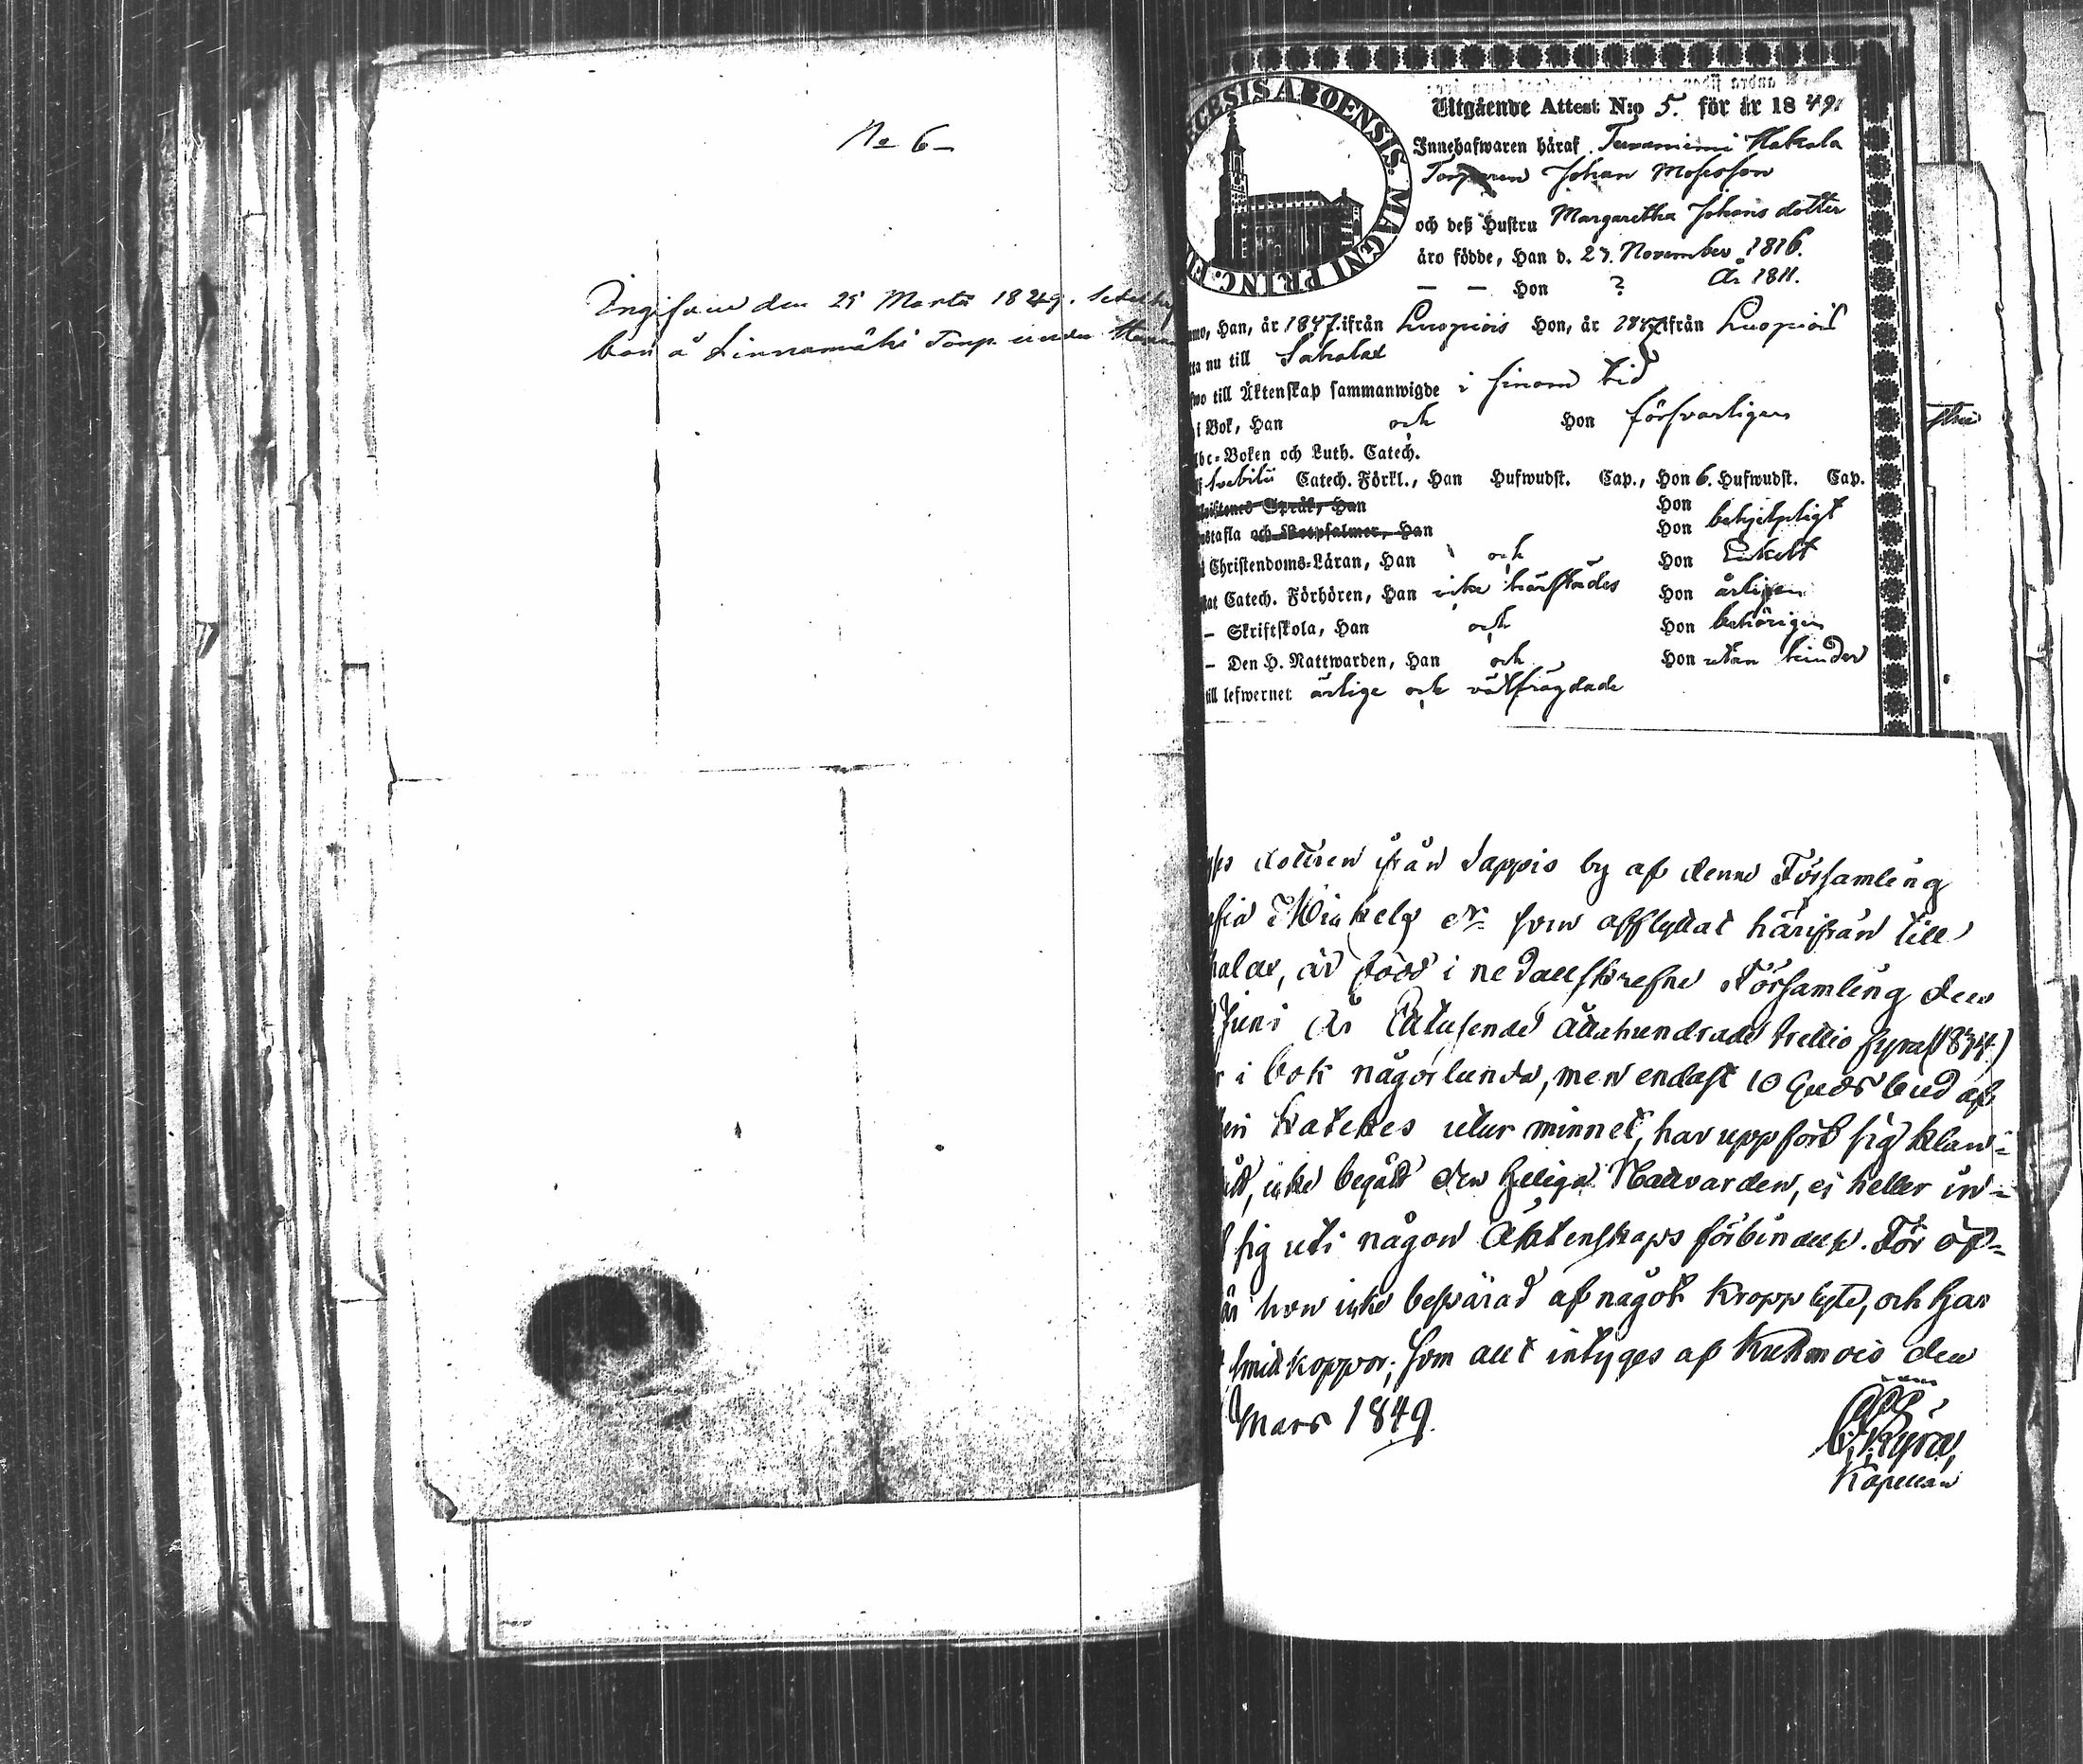 No 6
Ingifven den 25 Martii 1849.
bon å Linnamäki Torp under
ECESIS ABOENSIS. MAGNI PRINC. FI
Utgående Attest N:o 5. för år 1849.
Innehafwaren häraf Hakala
Torparen Johan Mosisson
och deß Hustru Margaretha Johans dotter
äro födde, Han d. 27. November 1816.
— — Hon ? År 1811.
mo, Han, år 1847. ifrån Luopiois Hon, år 1847 ifrån Luopiois
ta nu till Sahalax
wo till Äktenskap sammanwigde i sinom tid
i Bok, Han och Hon försvarligen
Abc-Boken och Luth. Catech.
Svebilii Catech. Förkl., Han Hufwudst. Cap., Hon 6. Hufwudst. Cap.
Språk, Han Hon
stafla och Botpsalmer, Han Hon behjelpligt
Christendoms-Läran, Han och Hon Enkelt
tat Catech. Förhören, Han icke härstädes Hon årligen
– Skriftskola, Han och Hon behörigen
– Den H. Nattwarden, Han och Hon utan hinder
till lefwernet ärlige och välfrägdade
dottren ifrån Sappis by af denne Församling
fia som afflyttat härifrån till
halax, är född i nedanskrefne Församling den
Juni År Ettusende Åttahundrade trettio fyra (1834)
r i bok någorlunda, men endast 10 Guds bud af
Katekes utur minnet, har uppfört sig klan-
icke begått den heliga Nattvarden, ej heller in-
sig uti någon Äktenskaps förbindelse. För öf-
är hon icke besvärad af något kropp lyte, och har
smittkoppor; som allt intyges af Kuhmois den
Mars 1849.
Kapellan